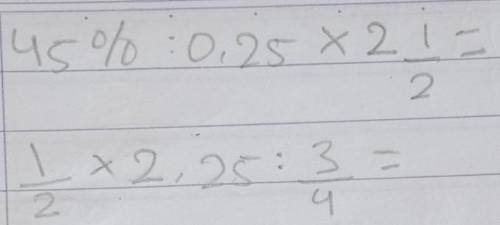 45% : 0,25 × 2 1/2 =
1/2 × 2,25 : 3/4 =